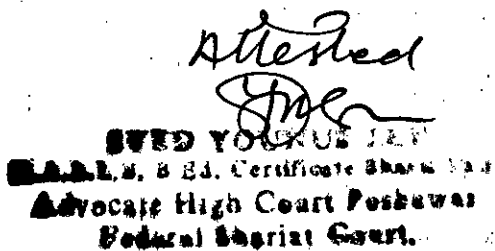 Attested
SYED YOUNUS JAN
B.A.LL.B, B Ed. Certificate Sharia Law
Advocate High Court Peshawar
Federal Shariat Court.